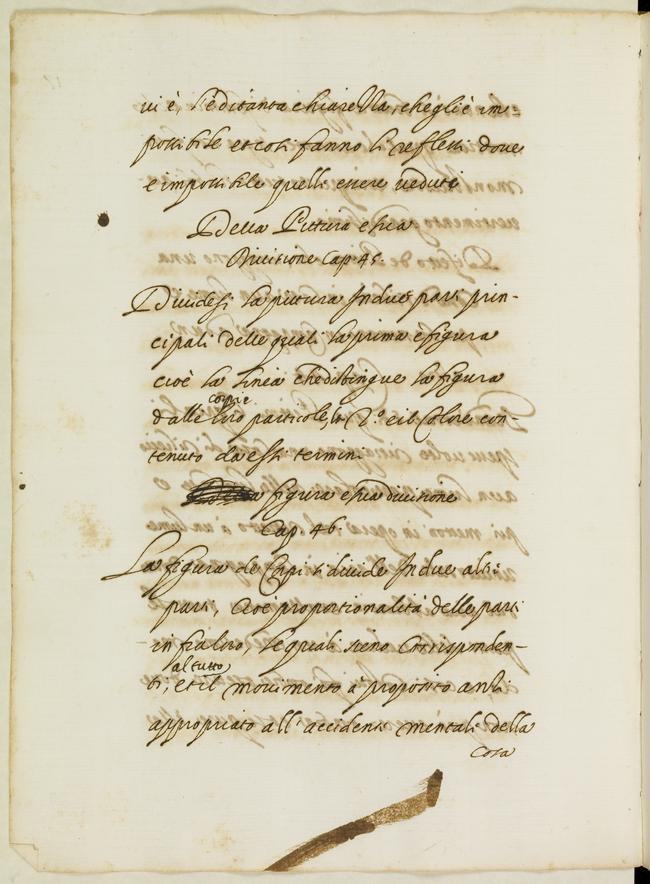 ui è, è di tanta chiarezza, che gli è im
possibile et così fanno li reflessi dove
e impossibile quelli essere veduti
Della Pittura e sua
Divitione Cap. 45.
Dividesi la pittura In due parti prin-
cipali delle quali la prima è figura
cioè la linea che distingue la figura
corpi e
dalli loro particole, la 2.º e il Colore con-
tenuto da essi termini
a figura e sua divitione
Cap. 46.
La figura de Corpi si divide In due altre
parti, Cioè proportionalità delle parti
in fra loro, le quali sieno Corrisponden-
al tutto
ti, et il movimento à proposito anzi
appropriato all' accidenti mentali della
Cosa